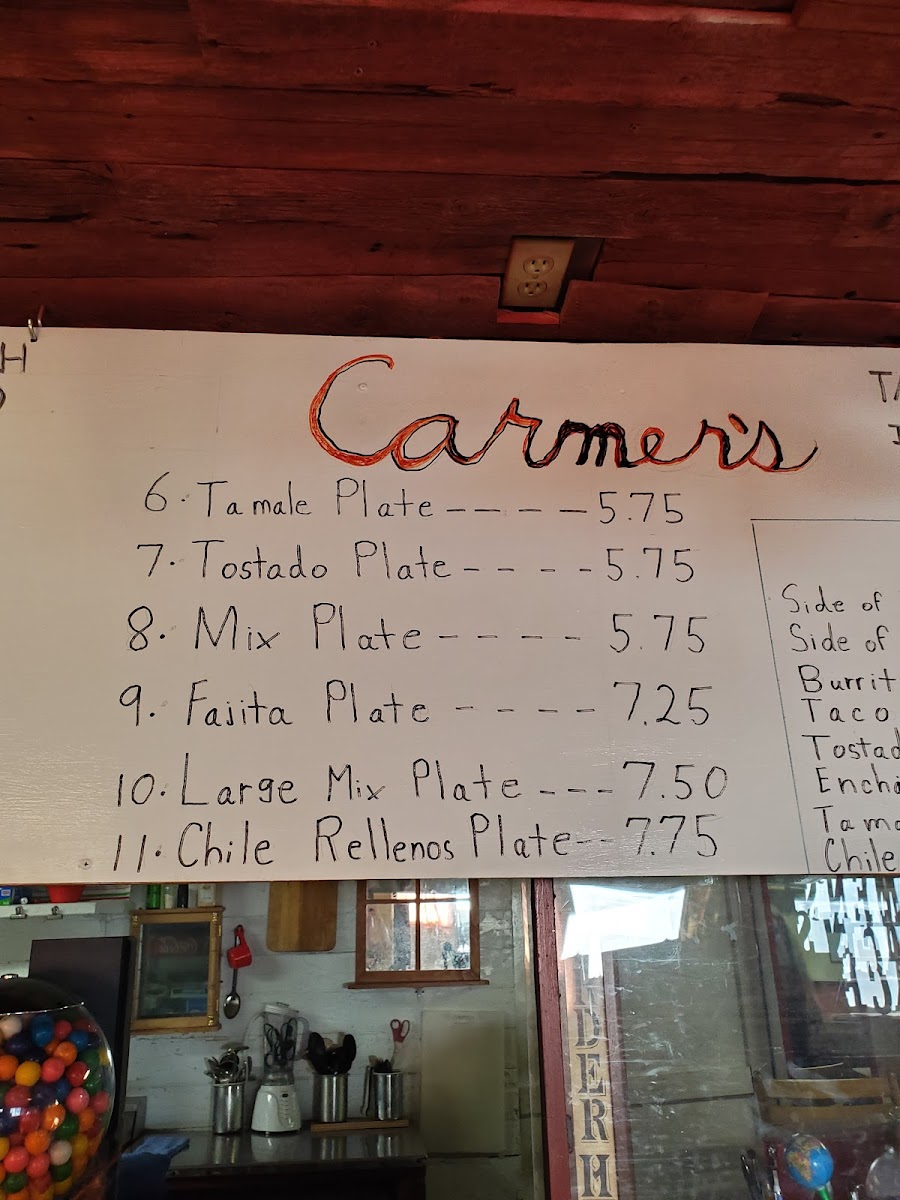 H
Carmen's
6. Tamale Plate ---- 5.75
7. Tostado Plate ---- 5.75
8. Mix Plate ---- 5.75
9. Fajita Plate ---- 7.25
10. Large Mix Plate --- 7.50
11. Chile Rellenos Plate -- 7.75
Side of
Side of
Burrit
Taco
Tostad
Encha
Tama
Chile
DERH